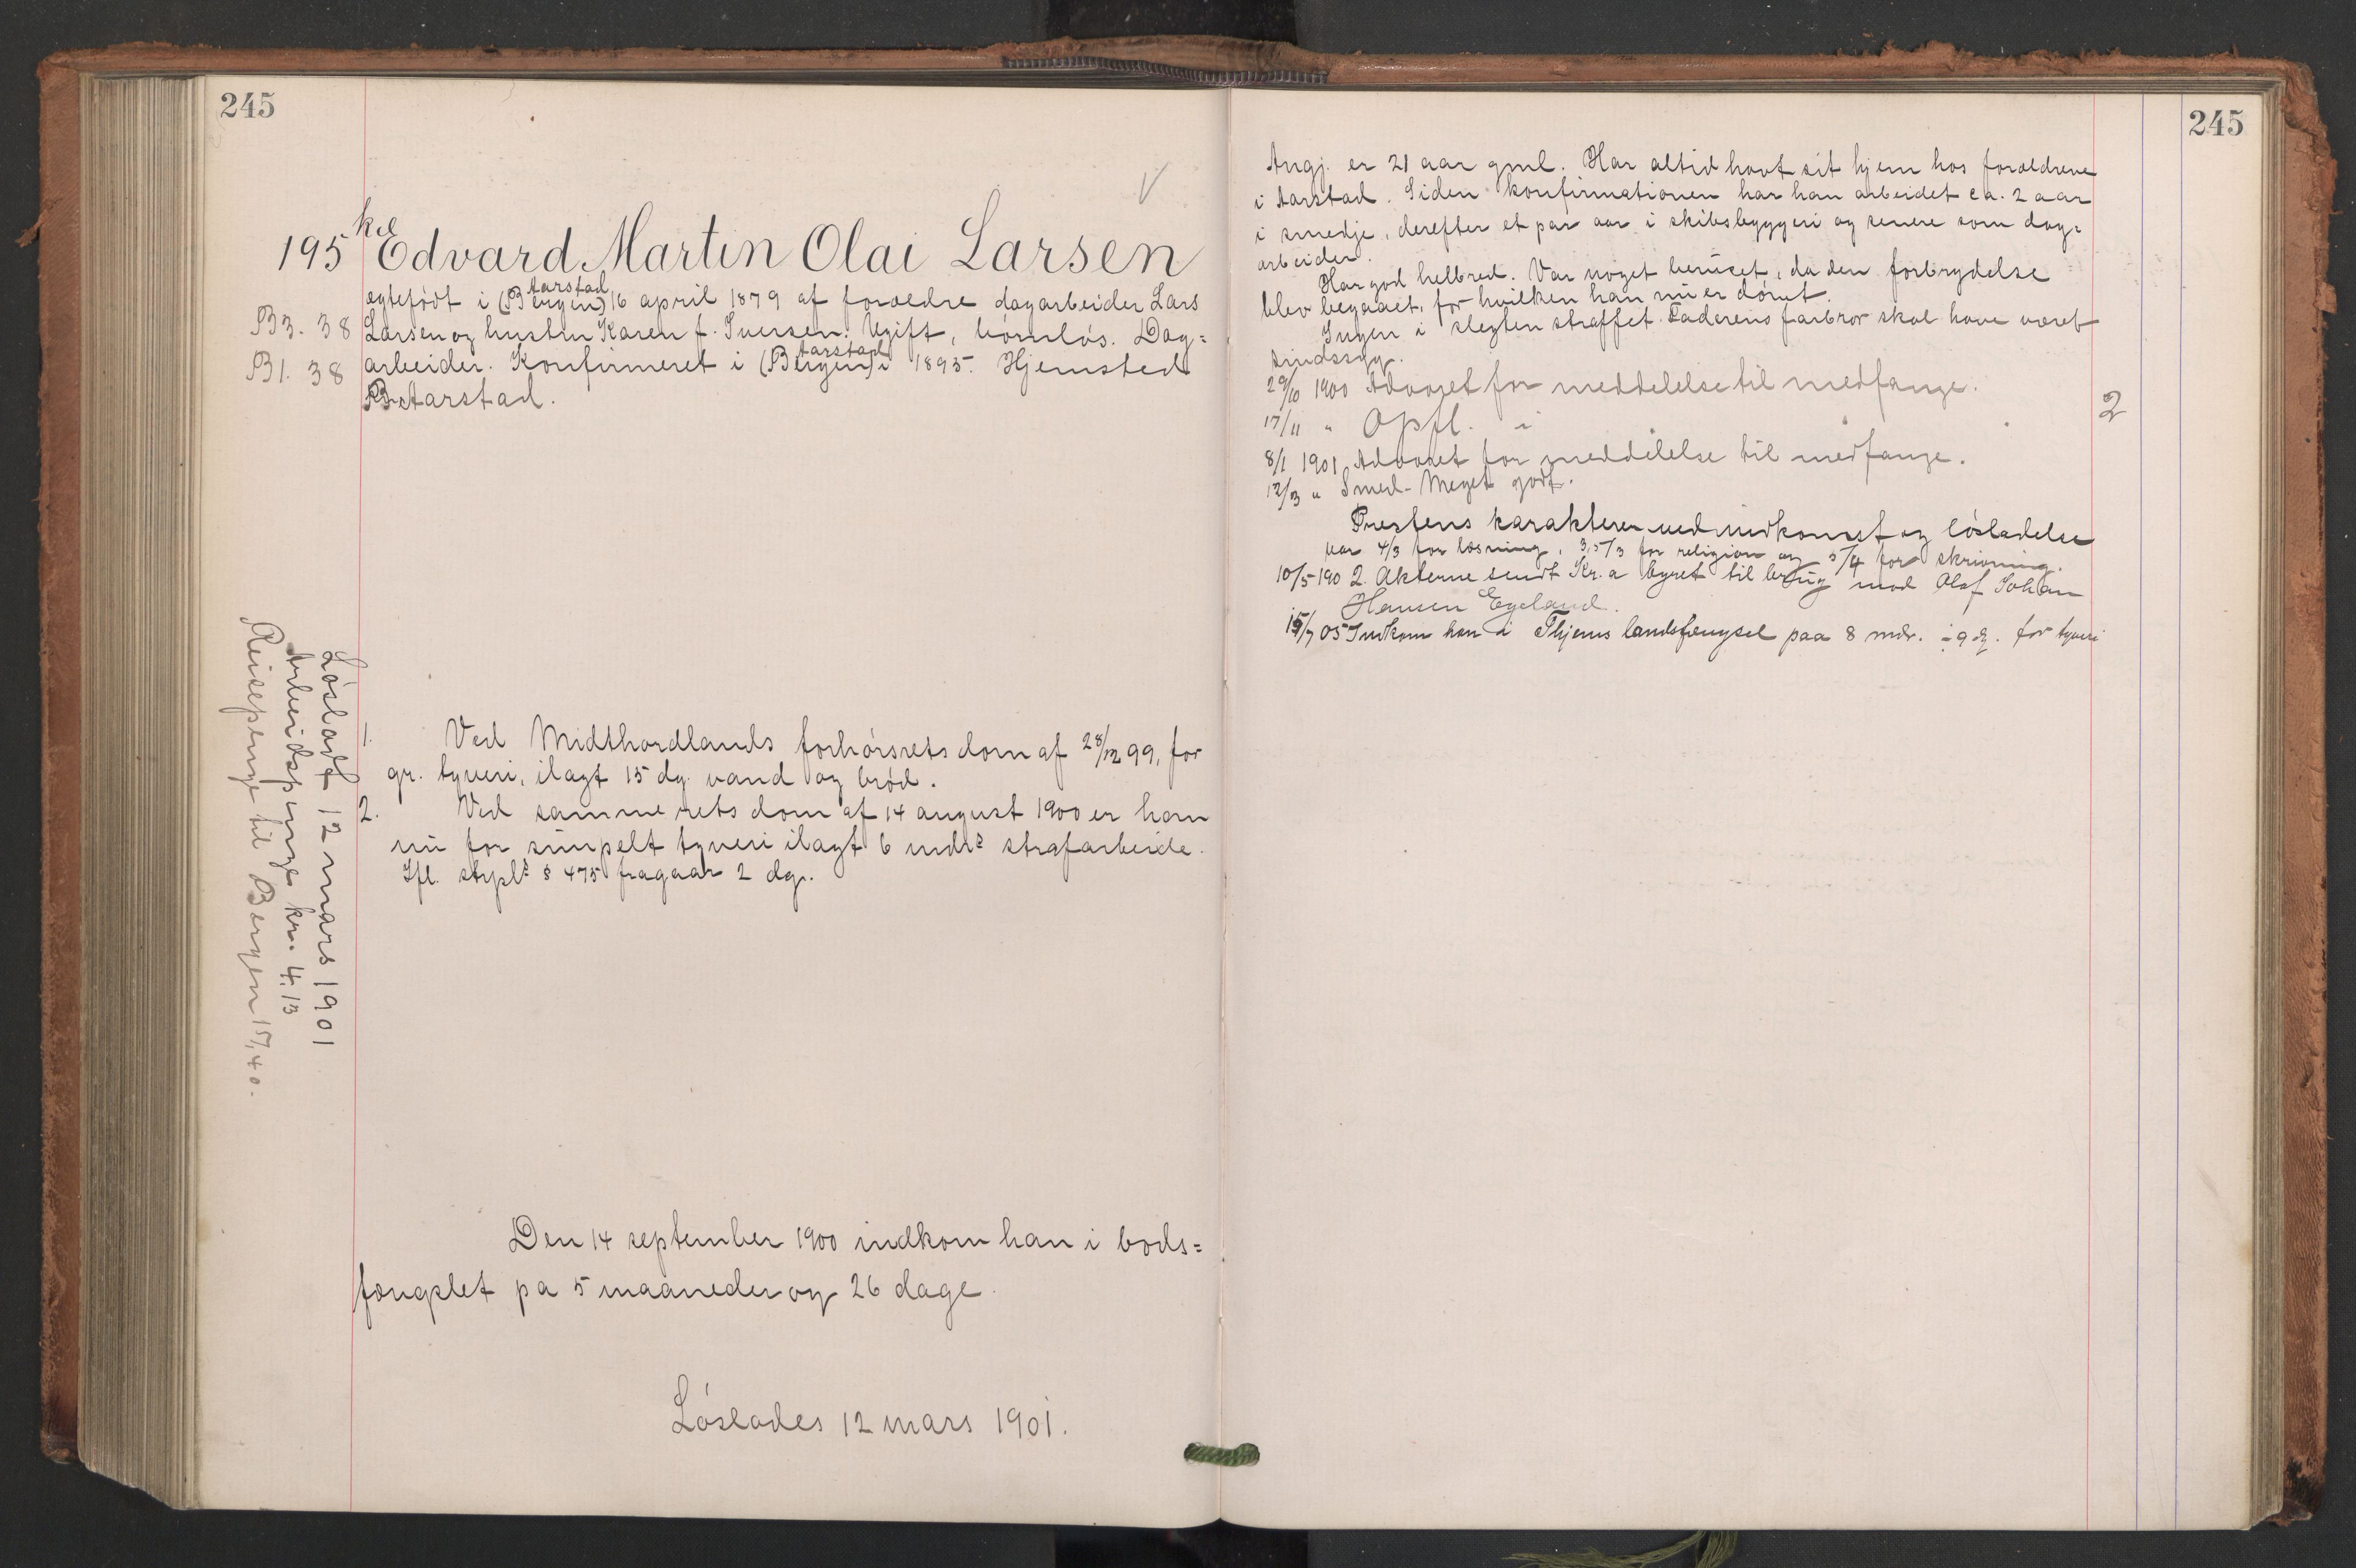 245
V
195 kd Edvard Martin Olai Larsen
Aarstad
ægtefødt i (Bergen) 16 april 1879 af forældre dagarbeider Lars
B3. 38 Larsen og hustru Karen f. Iversen. Ugift, børnløs. Dag=
Aarstad
B1. 38 arbeider. Konfirmeret i (Bergen) i 1895. Hjemsted
Aarstad.
1. Ved Midthordlands forhørsrets dom af 28/12 99, for
gr. tyveri, ilagt 15 dg. vand og brød.
2. Ved samme rets dom af 14 august 1900 er han
nu for simpelt tyveri ilagt 6 mdrs strafarbeide.
Ifl. strpls § 475 fragaar 2 dg.
Løsladt 12 mars 1901
Arbeidspenge kr. 4,13
Reisepenge til Bergen 15,40.
Den 14 september 1900 indkom han i bods=
fængslet pa 5 maaneder og 26 dage.
Løslades 12 mars 1901.
245
Angj. er 21 aar gml. Har altid havt sit hjem hos forældrene
i Aarstad. Siden konfirmationen har han arbeidet ca. 2 aar
i smedje, derefter et par aar i skibsbyggeri og senere som dag=
arbeider.
Har god helbred. Var noget beruset, da den forbrydelse
blev begaaet, for hvilken han nu er dømt.
Ingen i slegten straffet. Faderens farbror skal have været
sindssyg.
29/10 1900 Advaret for meddelelse til medfange.
2
17/11 " Opfl. i
8/1 1901 Advaret for meddelelse til medfange.
12/3 " Smed - Meget godt.
Prestens karakterer ved indkomst og løsladelse
var 4/3 for læsning, 3,5/3 for religion og 5/4 for skrivning.
10/5 1902. Akterne sendt Kr.a byret til brug mod Olaf Johan
Hansen Egeland.
15/7 05 Indkom han i Thjems landsfængsel paa 8 mdr. ÷ 9 dg. for tyveri